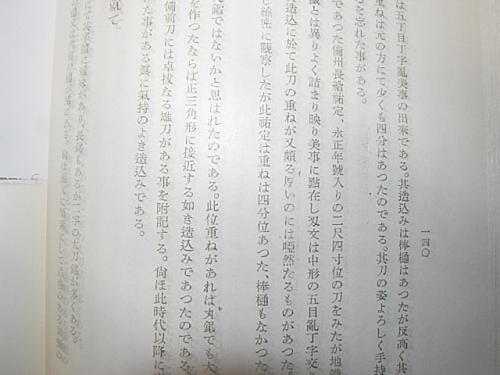 一四〇
は五丁丁字亂美事の出來である。其造込みは棒樋はあつたが反高く其
重ねは元の方にて少くも四分はあつたのである。其刀の姿よろしく手持
を忘れた事がある。
であつた備州長船祐定、永正年號入りの二尺四寸位の刀をみたが地
鐵とは異りよく詰まり映り美事に點在し刄文は中形の五目亂丁字交
造込に於て此刀の重ねが又頗る厚いのには啞然たるものがあつた。
し細密に觀察したが此祐定は重ねは四分位あつた、棒樋もなかつた
ではないかと思はれたのである。此位重ねがあれば丸鋩でも大
を作つたならば正三角形に接近する如き造込みであつたのである
備前刀には卓拔なる雄刀がある事を附記する。尙ほ此時代以降に
た事がある爲に氣持のよき造込みである。
就て。